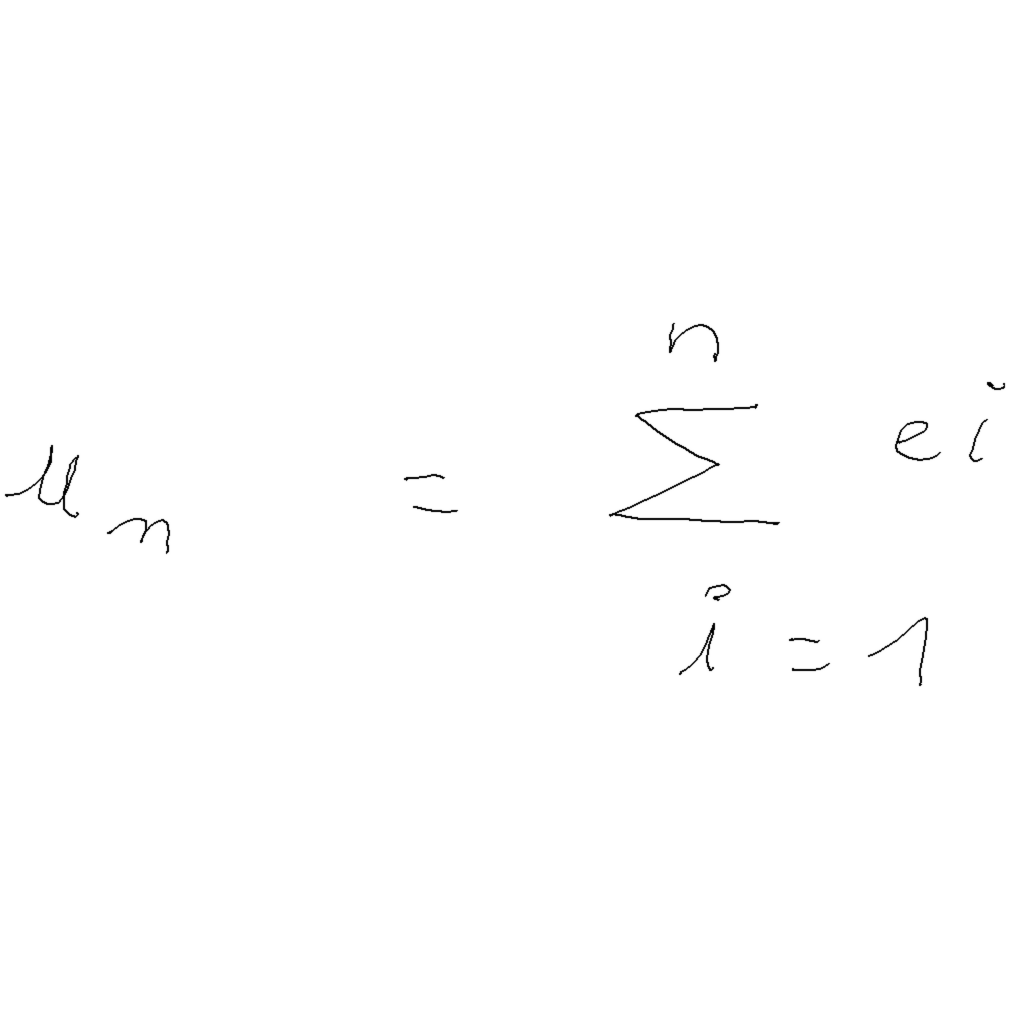 u_n = \sum_{i=1}^{n} e i